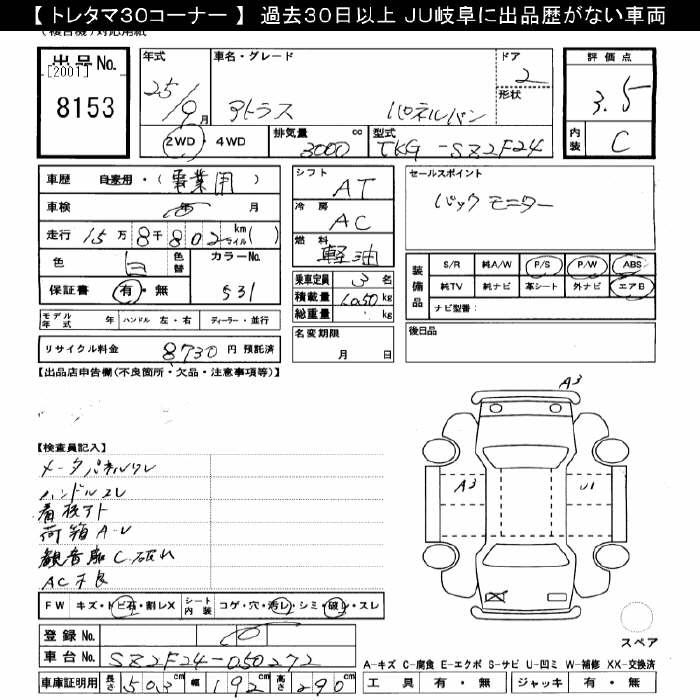 【 トレタマ30コーナー 】 過去30日以上 JU岐阜に出品歴がない車両
出品No.
[2001]
8153
年式
25/9月
車名・グレード
アトラス パネルバン
ドア
2
形状
評価点
3.5
内装
C
2WD・4WD
排気量
3000 cc
型式
TKG-SZ2F24
車歴 自家用・(事業用)
車検 年 月
走行 15万8千802 km マイル( )
色 白 色替
カラーNo.
531
保証書 有・無
シフト
AT
冷房
AC
燃料
軽油
乗車定員 3名
積載量 1050 kg
総重量 kg
名変期限
月 日
セールスポイント
バックモニター
装備品
S/R 純A/W P/S P/W ABS
純TV 純ナビ 革シート 外ナビ エアB
ナビ型番:
後日品
モデル年式 年 ハンドル 左・右 ディーラー・並行
リサイクル料金 8730 円 預託済
【出品店申告欄(不良箇所・欠品・注意事項等)】
【検査員記入】
メータパネルワレ
ハンドルスレ
荷箱A-U
観音扉C.破れ
AC不良
A3
A3
U1
FW キズ・トビ石・割レX
シート内装 コゲ・穴・汚レ・シミ・破レ・スレ
登録No.
車台No. SZ2F24-050272
車庫証明用 長さ 503 cm 幅 192 cm 高さ 290 cm
スペア
A-キズ C-腐食 E-エクボ S-サビ U-凹ミ W-補修 XX-交換済
工具 有・無 ジャッキ 有・無